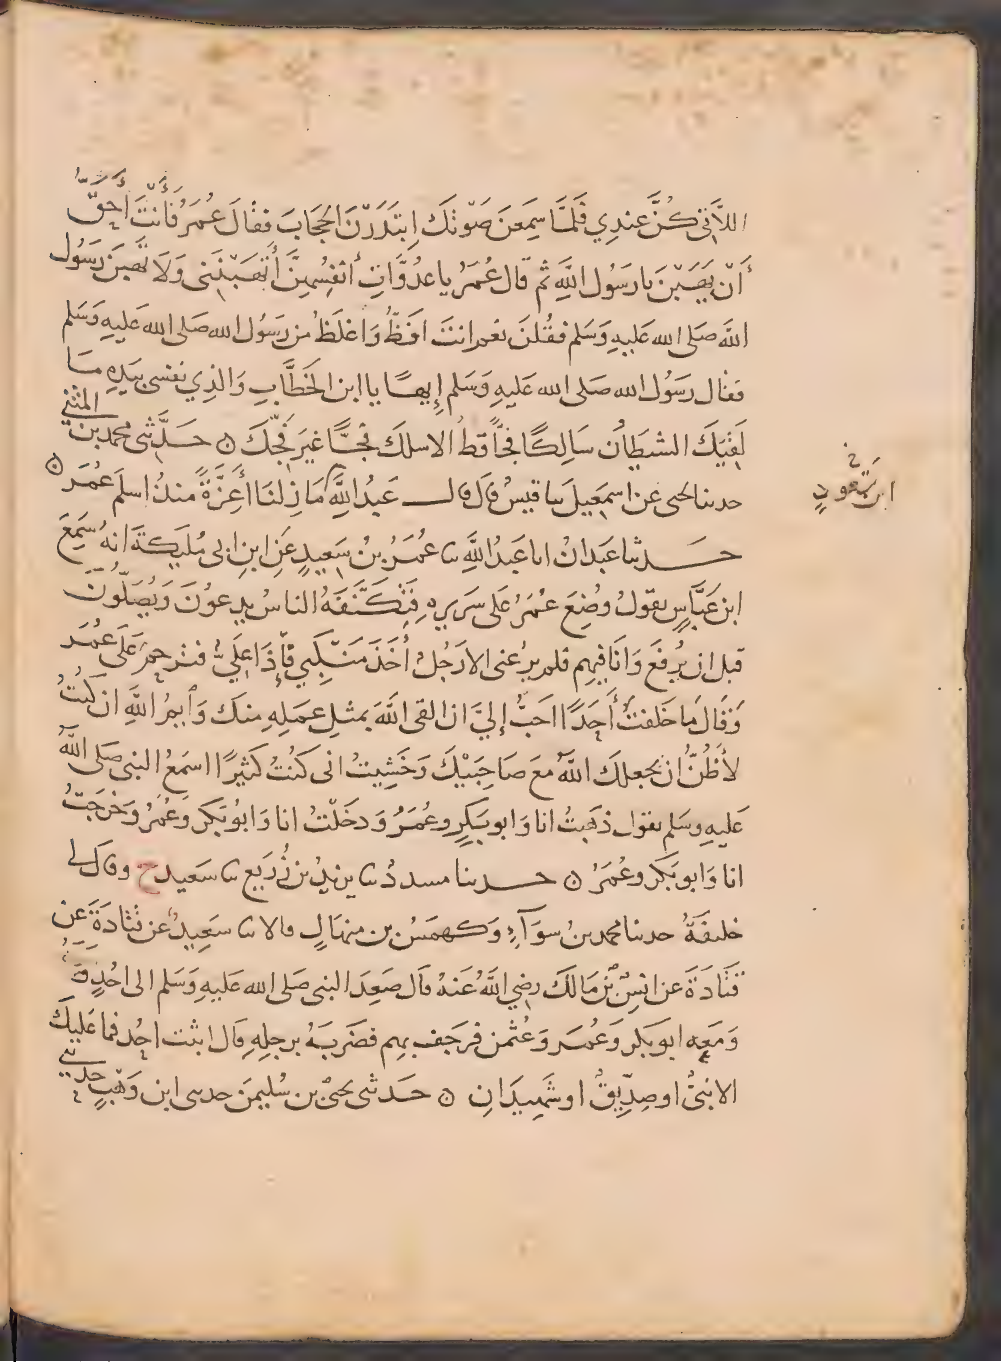 اللَّاتِي كُنَّ عِندِي فَلَمَّا سَمِعنَ صَوْتَكَ اِبْتَدَرْنَ الحِجَابَ فقالَ عُمَرُ فَأَنْتَ أَحَقُّ
أَنْ يَهَبْنَ يا رَسُول اللَّهِ ثم قال عُمَرُ يا عدُوَّاتِ أَنْفُسِهِنَّ أَتَهَبْنَنِى وَلا تَهَبْنَ رَسُول
اللَّه صَلى الله عَليهِ وَسَلم فقُلنَ نعم انتَ افَظُّ وَاغلَظُ من رَسُول الله صَلى الله عَليهِ وَسَلم
فقال رَسُول الله صَلى الله عَليهِ وَسَلم إِيهًا يا ابن الخَطَّابِ وَالذِي نفسى بيَدِهِ مَا
لَقِيَكَ الشيطَانُ سَالِكًا فَجًّا قَطُّ الا سلكَ فَجًّا غيرَ فَجِّكَ ه حَدَّثنى محمد بن المثنى
حدثنا يحيى عن اسمعِيلَ ثنا قيسٌ قال قال عَبدُ اللَّهِ مَا زِلنَا أَعِزَّةً منذُ اسلَمَ عُمَر ه
ابن مَسعُودٍ
حدثنا عَبدَانُ انا عَبدُ اللَّهِ ثنا عُمَرُ بنُ سَعِيدٍ عَنِ ابنِ ابى مُلَيكَةَ انهُ سَمِعَ
ابن عَبَّاسٍ يقولُ وُضِعَ عُمَرُ عَلى سَرِيرِهِ فَتَكَنَّفَهُ الناسُ يدعونَ وَيُصَلُّونَ
قبل ان يُرفَعَ وَانَا فِيهِم فلم يَرُعنى الا رَجُلٌ أَخَذَ مَنْكِبِي فَإِذَا عَلِيٌّ فترحمَ عَلَى عُمَر
وَقَال مَا خَلفتَ أَحَدًا احَبَّ إِليَّ ان القى اللَّهَ بمثلِ عمَلِهِ مِنكَ وَأيمُ اللَّهِ ان كنتُ
لأَظُنُّ ان يجعلكَ اللَّهُ مَعَ صَاحِبَيْكَ وَحَسِبتُ انى كنتُ كَثِيرًا اسمَعُ النبى صَلى اللَّه
عَليهِ وسَلم يقول ذَهَبتُ انا وَابو بَكرٍ وعُمَرُ وَدخَلتُ انا وَابو بَكر وَعُمرُ وَخرَجتُ
انا وَابو بَكر وعُمَرُ ه حدثنا مسددٌ ثنا يزيدُ بن زُرَيع ثنا سَعِيد ح وقال لى
خليفَةُ حدثنا محمد بنُ سَوَآءٍ وَكَهمَسُ بن منهالٍ قالا ثنا سَعِيدٌ عن قتادَةَ عَن
قتَادَةَ عن انسِ بْنِ مَالكَ رضي اللَّهُ عَنهُ قال صَعِدَ النبى صَلى الله عَليهِ وَسَلم الى احُدٍ
وَمَعَه ابو بَكر وَعُمَر وَعُثمٰن فرَجَف بهِم فضَرَبَهُ برجلِهِ قال اثبت احُد فما عَليكَ
الا نبيٌّ او صِدِّيقٌ او شَهِيدَانِ ه حَدثنى يحيى بن سُليمٰن حدثنى ابن وَهْبٍ حدثنى